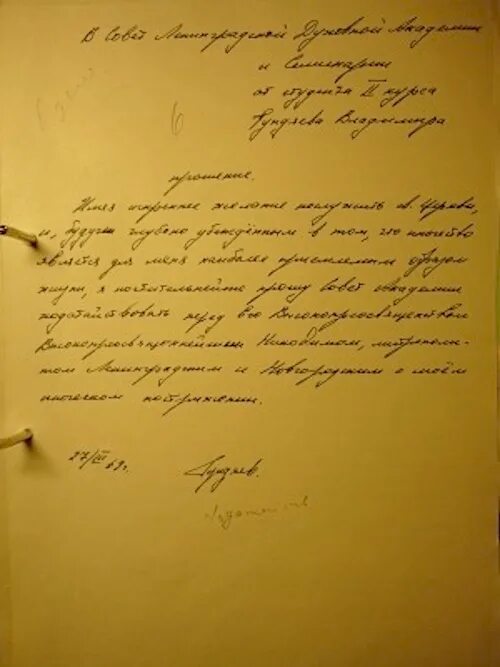 В Совет Ленинградской Духовной Академии
и Семинарии
от студента II курса
Гундяева Владимира
6
прошение.
Имея искреннее желание послужить св. Церкви,
и, будучи глубоко убеждённым в том, что иночество
является для меня наиболее приемлемым образом
жизни, я почтительнейше прошу Совет академии
ходатайствовать перед Его Высокопреосвященством
Высокопреосвященнейшим Никодимом, митрополи-
том Ленинградским и Новгородским о моём
иноческом пострижении.
27/III 69 г.
Гундяев.